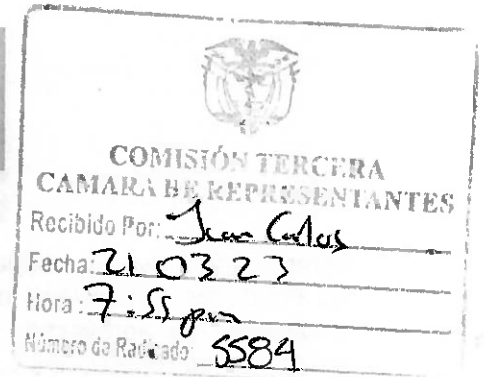 COMISIÓN TERCERA
CAMARA DE REPRESENTANTES
Recibido Por: Juan Carlos
Fecha: 21 03 23
Hora: 7:55 pm
Número de Radicado: 5584